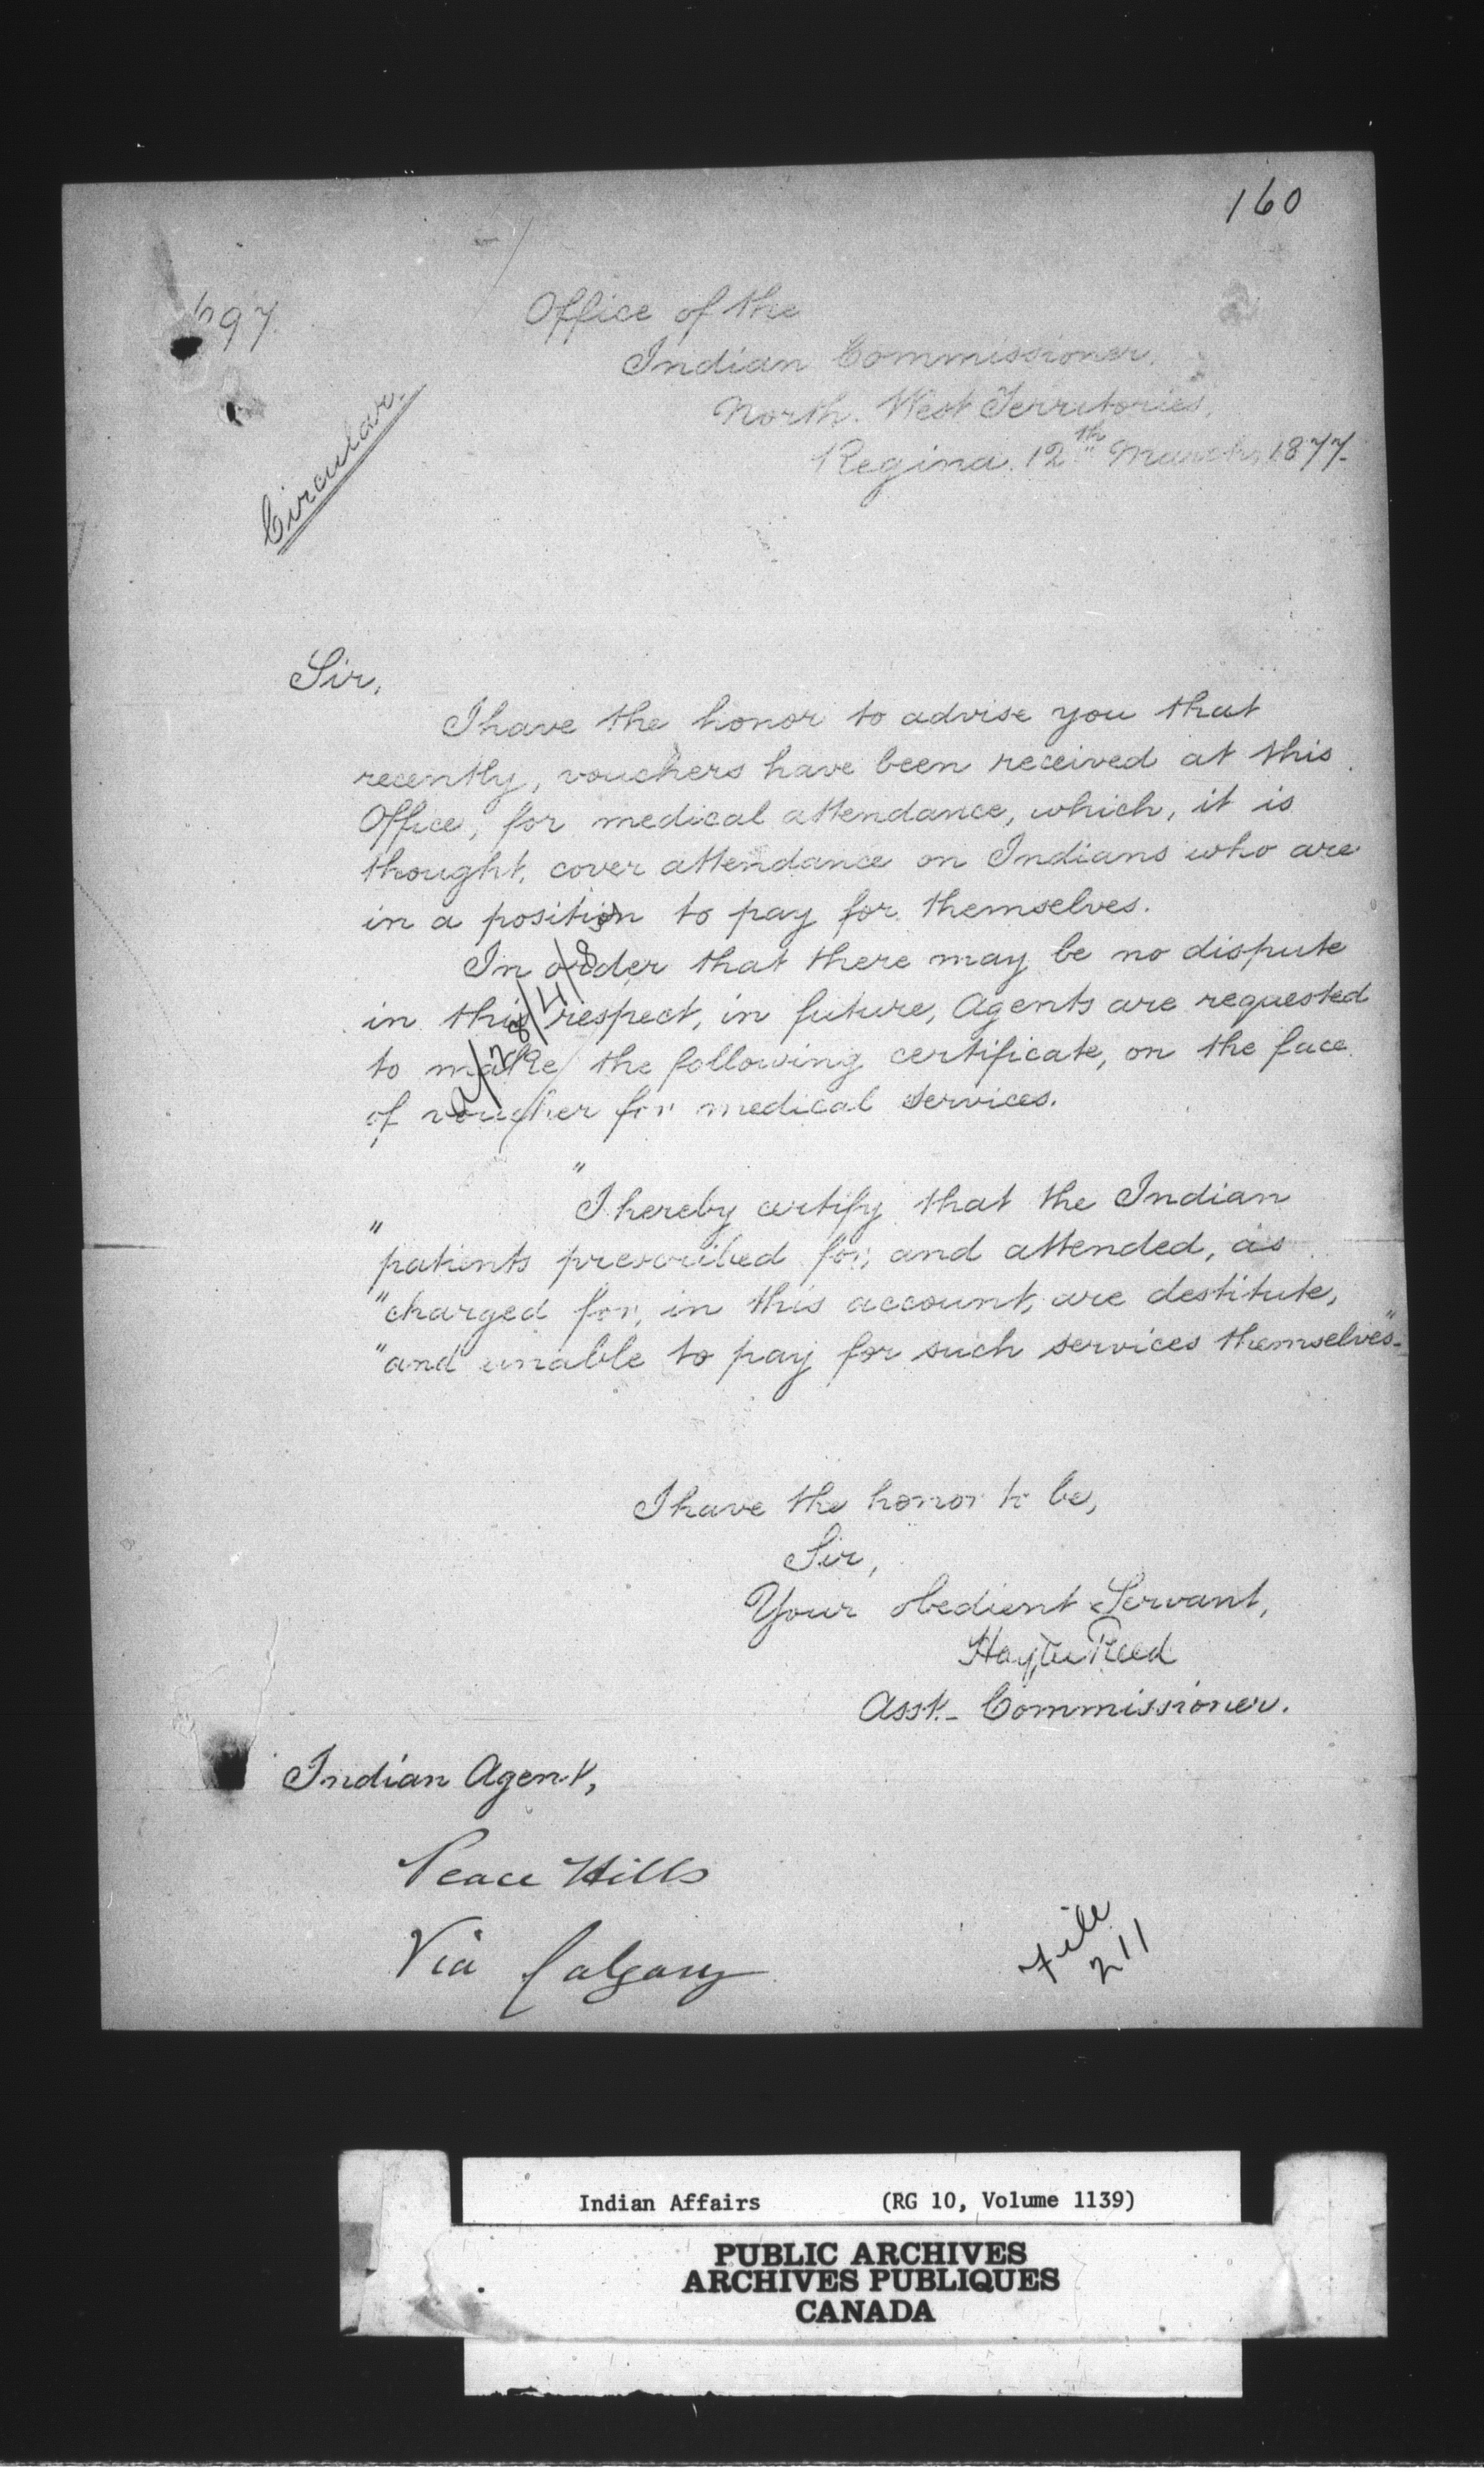 160
697.
Office of the
Indian Commissioner.
North. West Territories.
Regina. 12th March, 1877.
Circular.
Sir,
I have the honor to advise you that
recently, vouchers have been received at this
Office, for medical attendance, which, it is
thought, cover attendance on Indians who are
in a position to pay for themselves.
In order that there may be no dispute
in this respect, in future, Agents are requested
to make the following certificate, on the face
of voucher for medical services.
"I hereby certify that the Indian
"patients prescribed for, and attended, as
"charged for, in this account, are destitute,
"and unable to pay for such services themselves".
I have the honor to be,
Sir,
Your obedient Servant,
Hayter Reed
Asst. Commissioner.
Indian Agent,
Peace Hills
Via Calgary
File
211
Indian Affairs (RG 10, Volume 1139)
PUBLIC ARCHIVES
ARCHIVES PUBLIQUES
CANADA